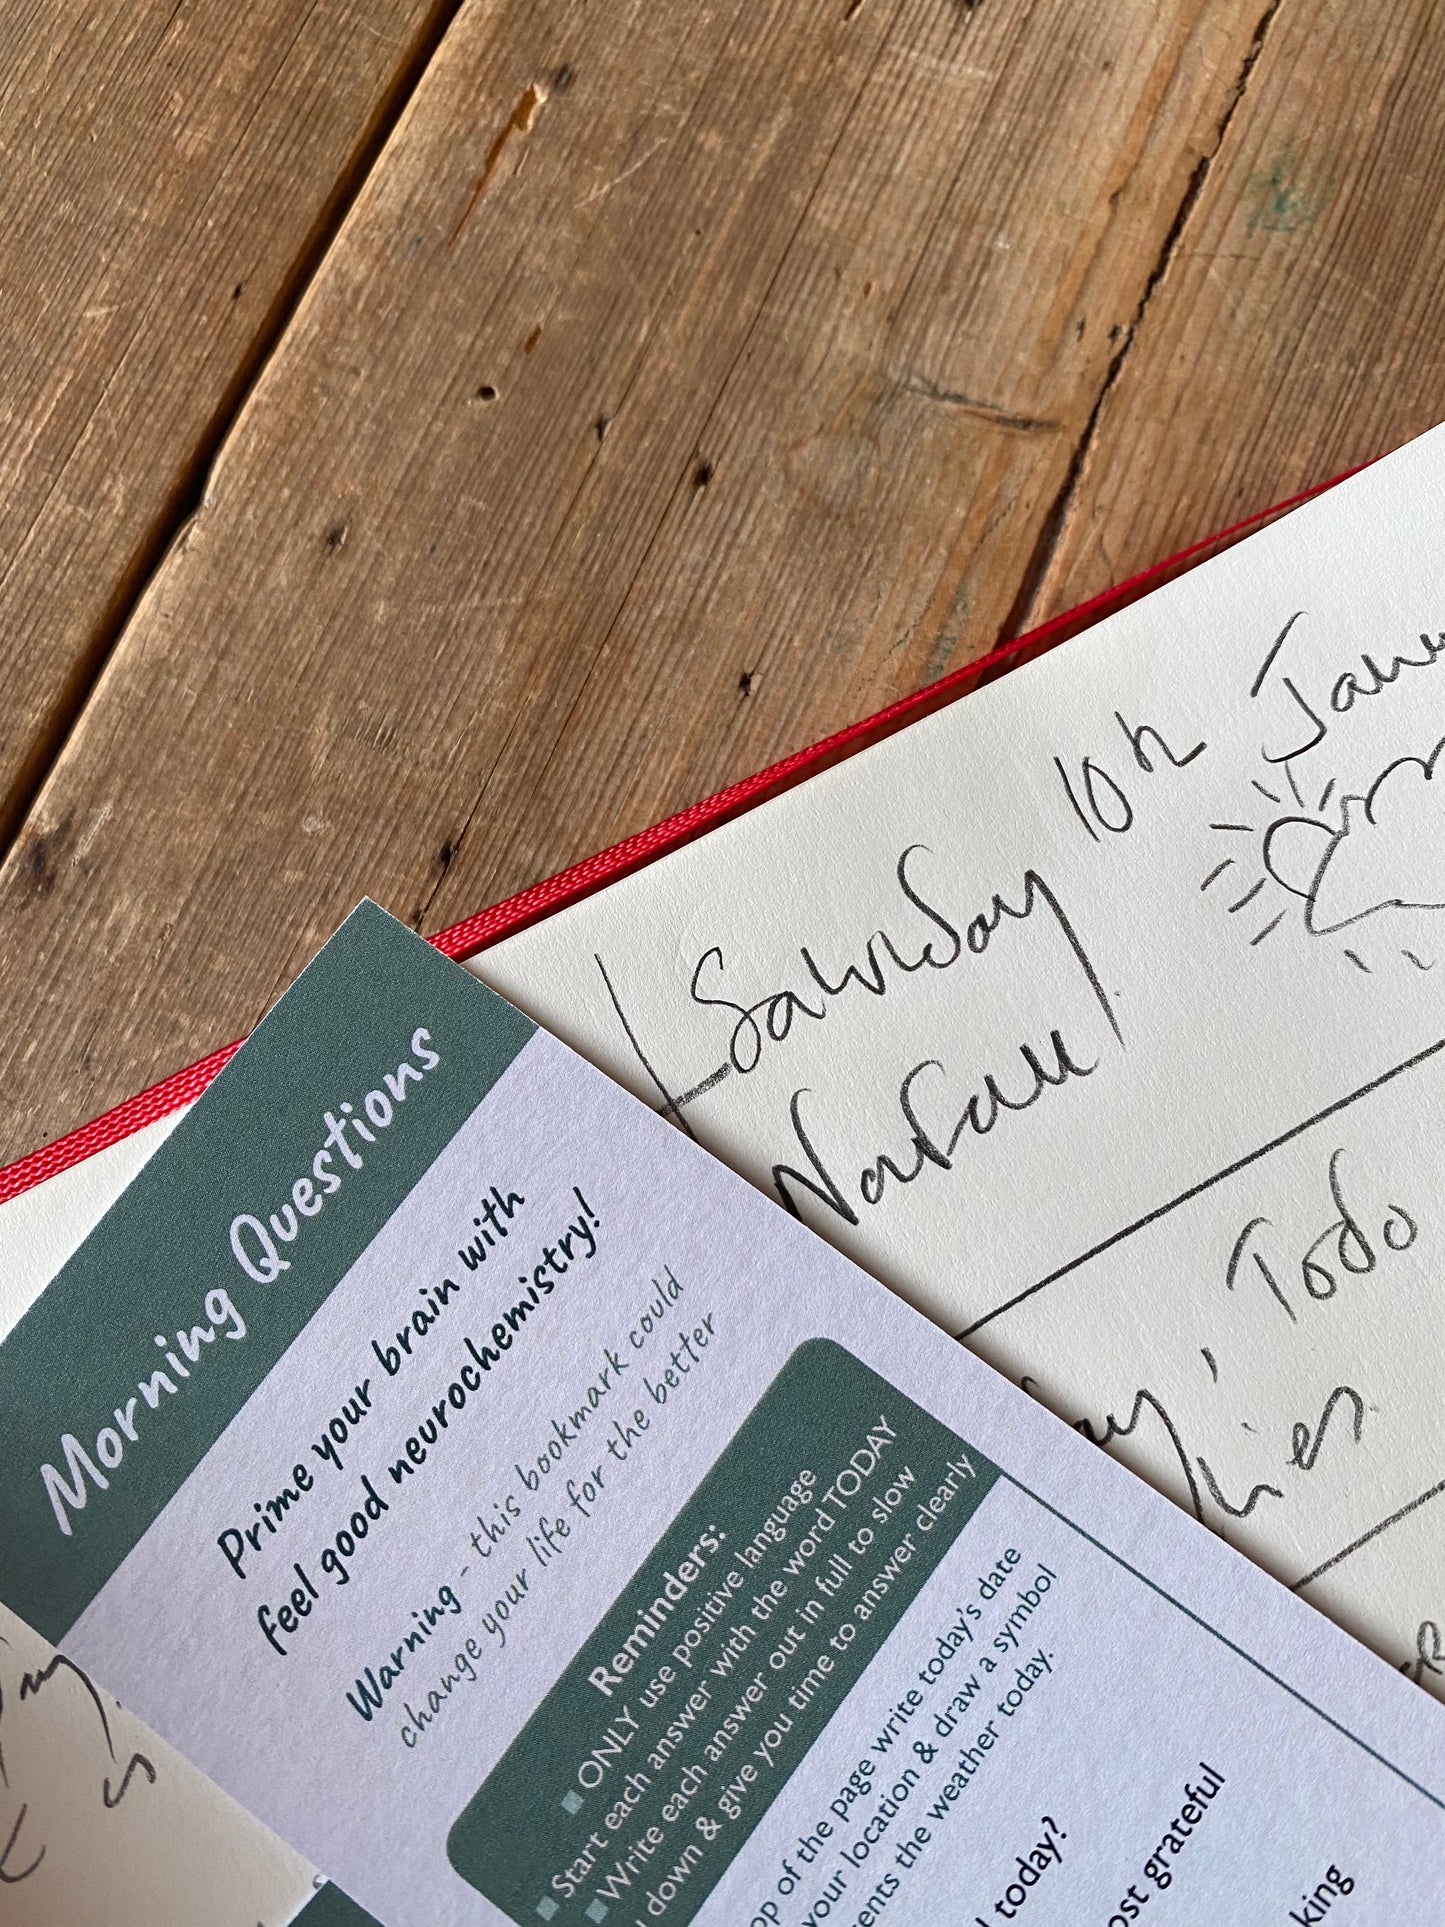 Saturday 10th Janu
Norfolk
Today
Morning Questions
Prime your brain with
feel good neurochemistry!
Warning - this bookmark could
change your life for the better
Reminders:
ONLY use positive language
Start each answer with the word TODAY
Write each answer out in full to slow
down & give you time to answer clearly
op of the page write today's date
your location & draw a symbol
ents the weather today.
today?
ost grateful
king